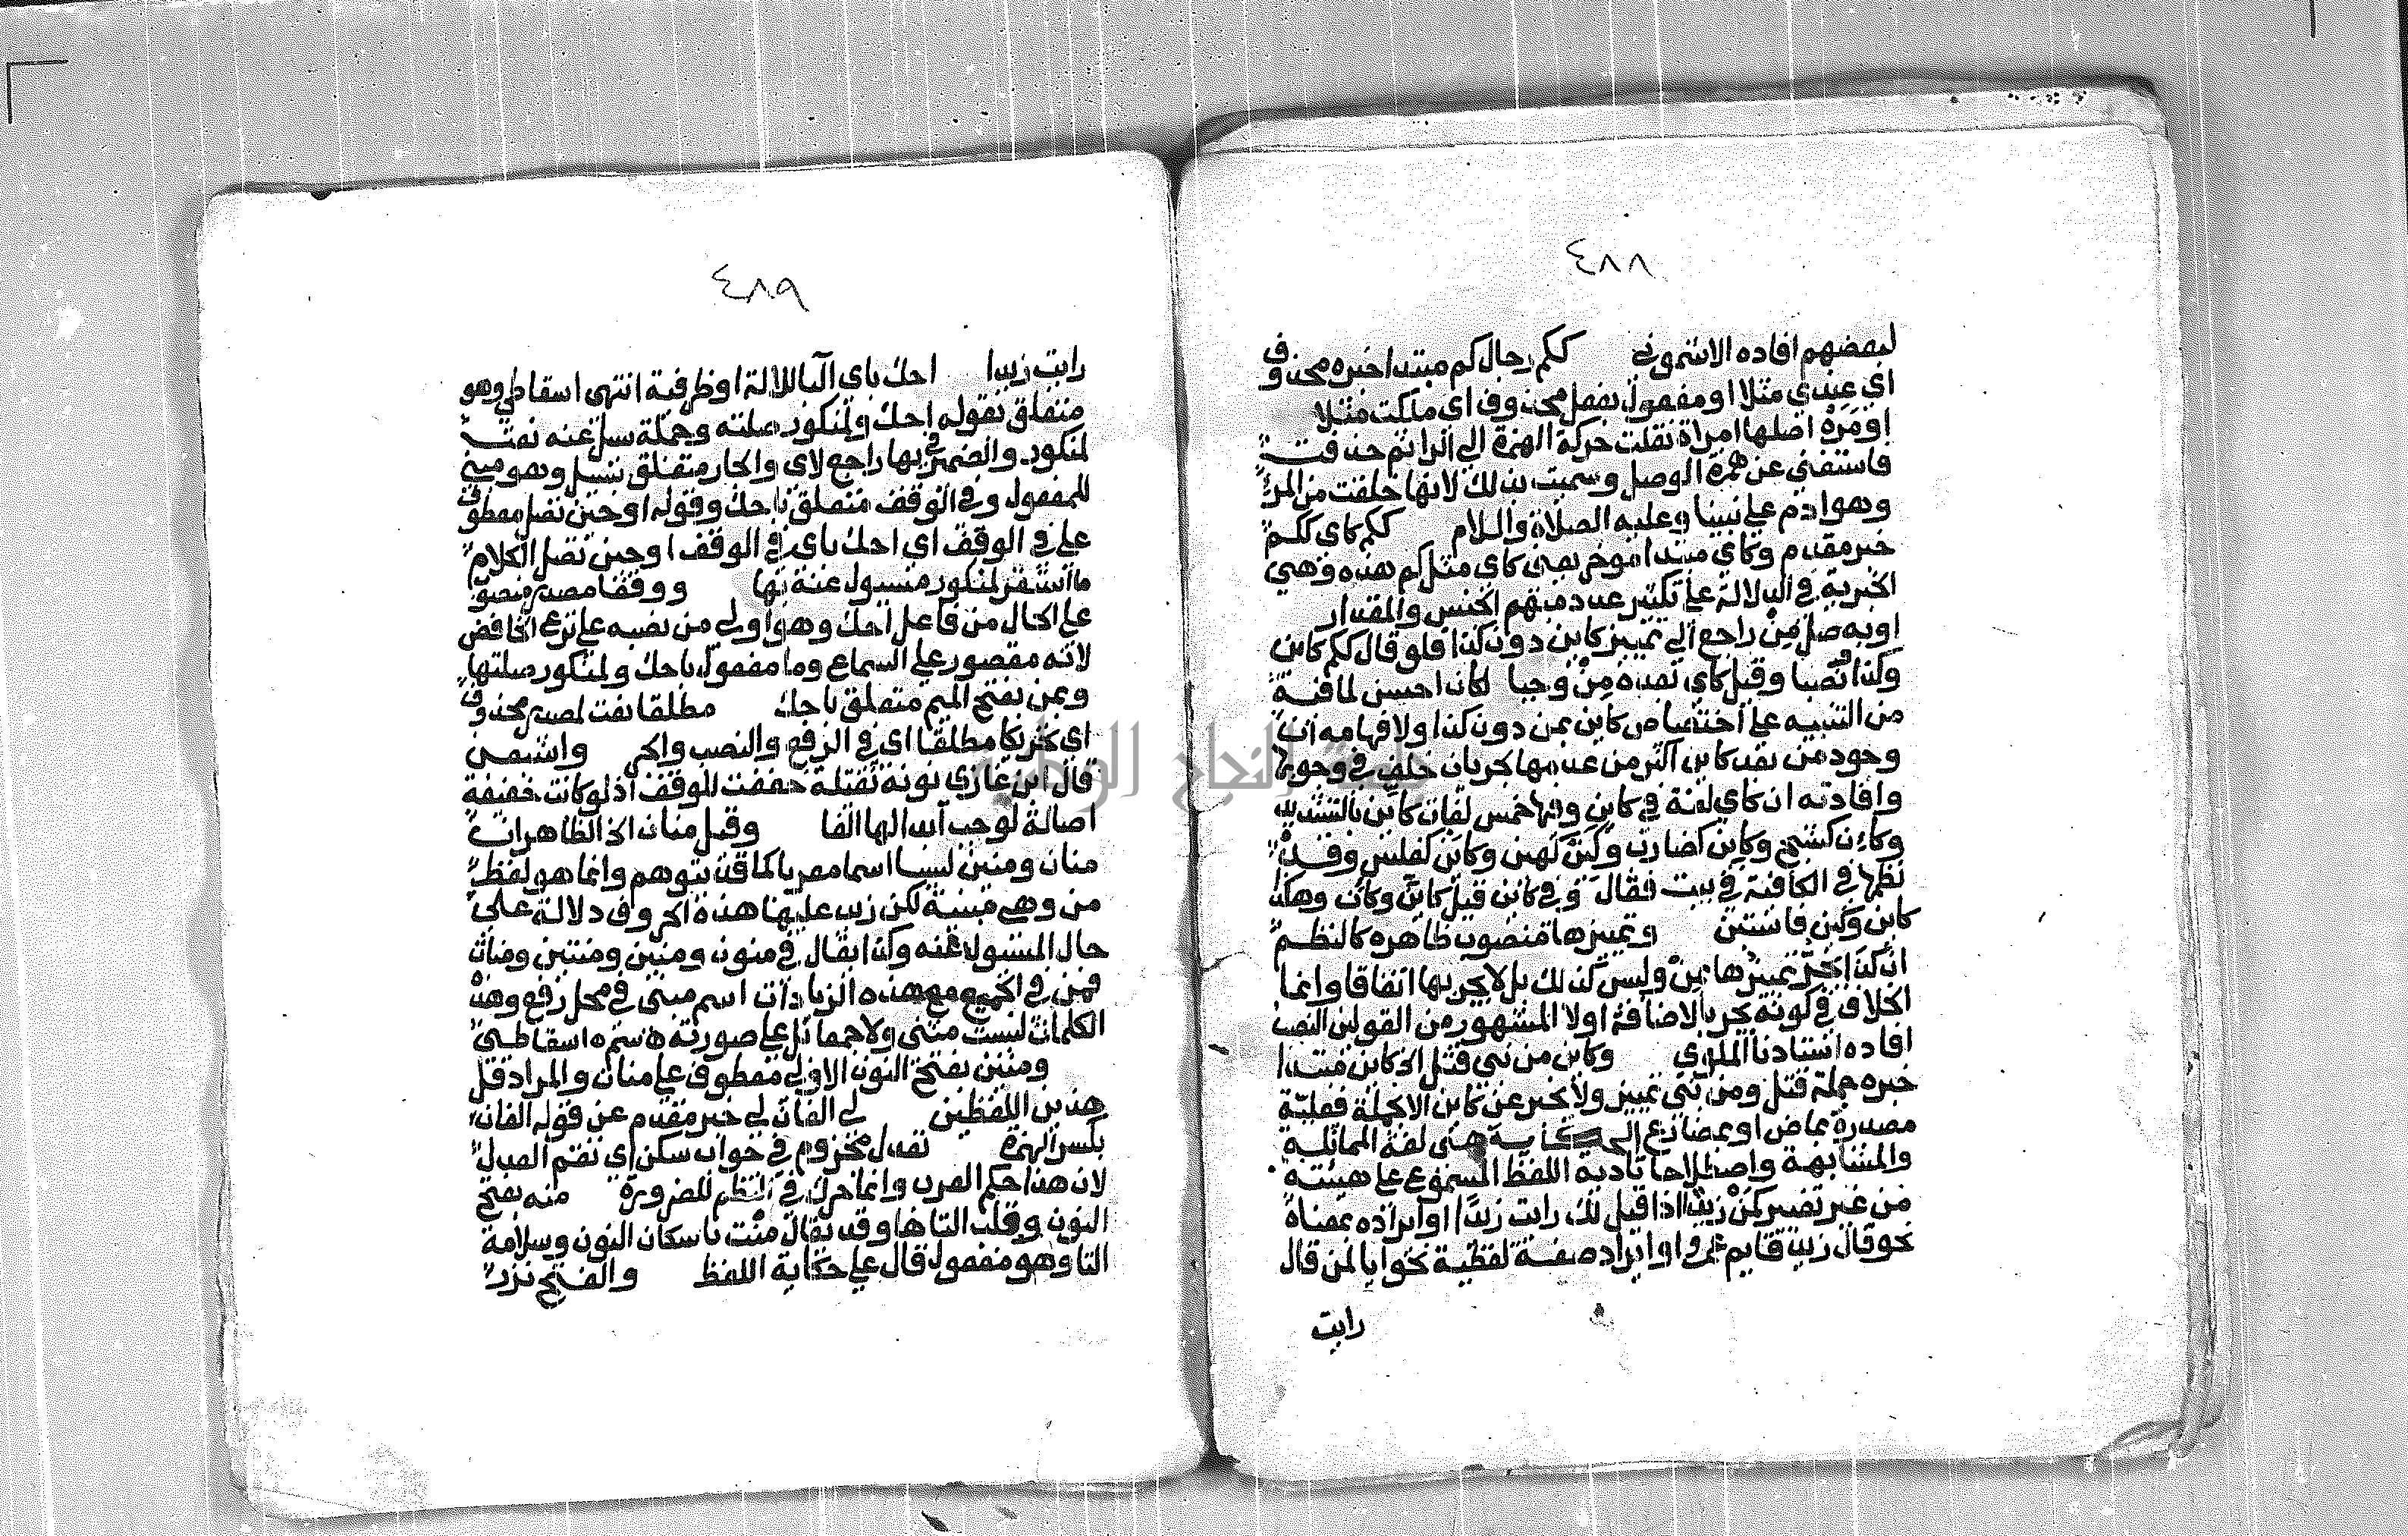 ٤٨٨
لبعضهم افاده الاشموني ككم رجال كم مبتدا خبره محذوف
اي عبيدي مثلا او مفعول بفعل محذوف اي ملكت مثلا
او مَرَهْ اصلها امراة نقلت حركة الهمزة الي الرا ثم حذفت
فاستغني عن همزة الوصل وسميت بذلك لانها خلقت من المرء
وهو ادم علي نبينا وعليه الصلاة والسلام ككم كاي ككم
خبر مقدم وكاي مبتدا موخر بمعني كاي مثل كم هذه وهي
الخبرية في الدلالة علي تكثير عدد مبهم الجنس والمقدار
او به صل مِنْ راجع الي تمييز كاين دون كذا فلو قال ككم كاين
وكذا نصبا وقيل كاي بعده مِنْ وجبا لكان احسن لما فيه
من التنبيه علي اختصاص كاين بمن دون كذا ولافهامه ان
وجود من بعد كاين اكثر من عدمها لجريان خلف في وجوبها
وافادته ان كاي لغة في كاين وفيها خمس لغات كايّن بالتشديد
وكاءن كشج وكاين كضارب وكَيَن كهين وكاين كفلس وقد
نظمها في الكافية في بيت فقال وفي كاين قيل كاين وكان وهكذا
كاين وكين فاستبن وتمييزها منصوب ظاهره كالنظم
ان كذا يجرّ تمييزها بمِنْ وليس كذلك بل لا يجر بها اتفاقا وانما
الخلاف في كونه يجر بالاضافة اولا المشهور من القولين النصب
افاده استادنا الملوي وكاين من نبي قتل الخ كاين مبتدا
خبره جملة قتل ومن نبي تمييز ولا يخبر عن كاين الا بجملة فعلية
مصدرة بماض او بمضارع الحكاية هي لغة المماثلة
والمشابهة واصطلاحا تادية اللفظ المسموع علي هيئته
من غير تغيير كمَنْ زيدا اذا قيل لك رايت زيدا او ايراده بمعناه
نحو قال زيد قايم عمرو او ايراد صفة لفظية نحو ايا لمن قال
رايت
٤٨٩
رايت زيدا احك باي البا للالة او ظرفية انتهي اسقاطي وهو
متعلق بقوله احك ولمنكور صلته وجملة سيل عنه نعت
لمنكور والضمير في بها راجع لاي والجار متعلق بسيل وهو مبني
للمفعول وفي الوقف متعلق باحك وقوله او حين تصل معطوف
علي في الوقف اي احك باي في الوقف او حين تصل الكلام
ما استقر لمنكور مسيول عنه بها ووقفا مصدر منصوب
علي الحال من فاعل احك وهو اولي من نصبه علي نزع الخافض
لانه مقصور علي السماع وما مفعول باحك ولمنكور صلتها
وبمن بفتح الميم متعلق باحك مطلقا نعت لمصدر محذوف
اي تحريكا مطلقا اي في الرفع والنصب والجر واشبعن
قال ابن غازي نونه ثقيلة خففت للوقف اذ لو كانت خفيفة
اصالة لوجب ابدالها الفا وقيل منان الخ الظاهر ان
منان ومنين ليسا اسما معربا كما قد يتوهم وانما هو لفظ
من وهي مبنية لكن زيد عليها هذه الحروف دلالة علي
حال المسول عنه وكذا يقال في منون ومنين ومنتين ومنات
فمن في الجميع مع هذه الزيادات اسم مبني في محل رفع وهذه
الكلمات ليست مثني ولا جمعا بل علي صورته ه سم ه اسقاطي
ومنين بفتح النون الاولي معطوف علي منان والمراد قل
هذين اللفظين لي الفان لي خبر مقدم عن قوله الفان
بكسر الهمزة تعدل مجزوم في جواب سكن اي تقم العدل
لان هذا حكم العرب وانما حرك في النظم للضرورة منه بفتح
النون وقلب التا ها وقد يقال منْت باسكان النون وسلامة
التا وهو مفعول قال علي حكاية اللفظ والفتح نزر
جامعة النجاح الوطنية